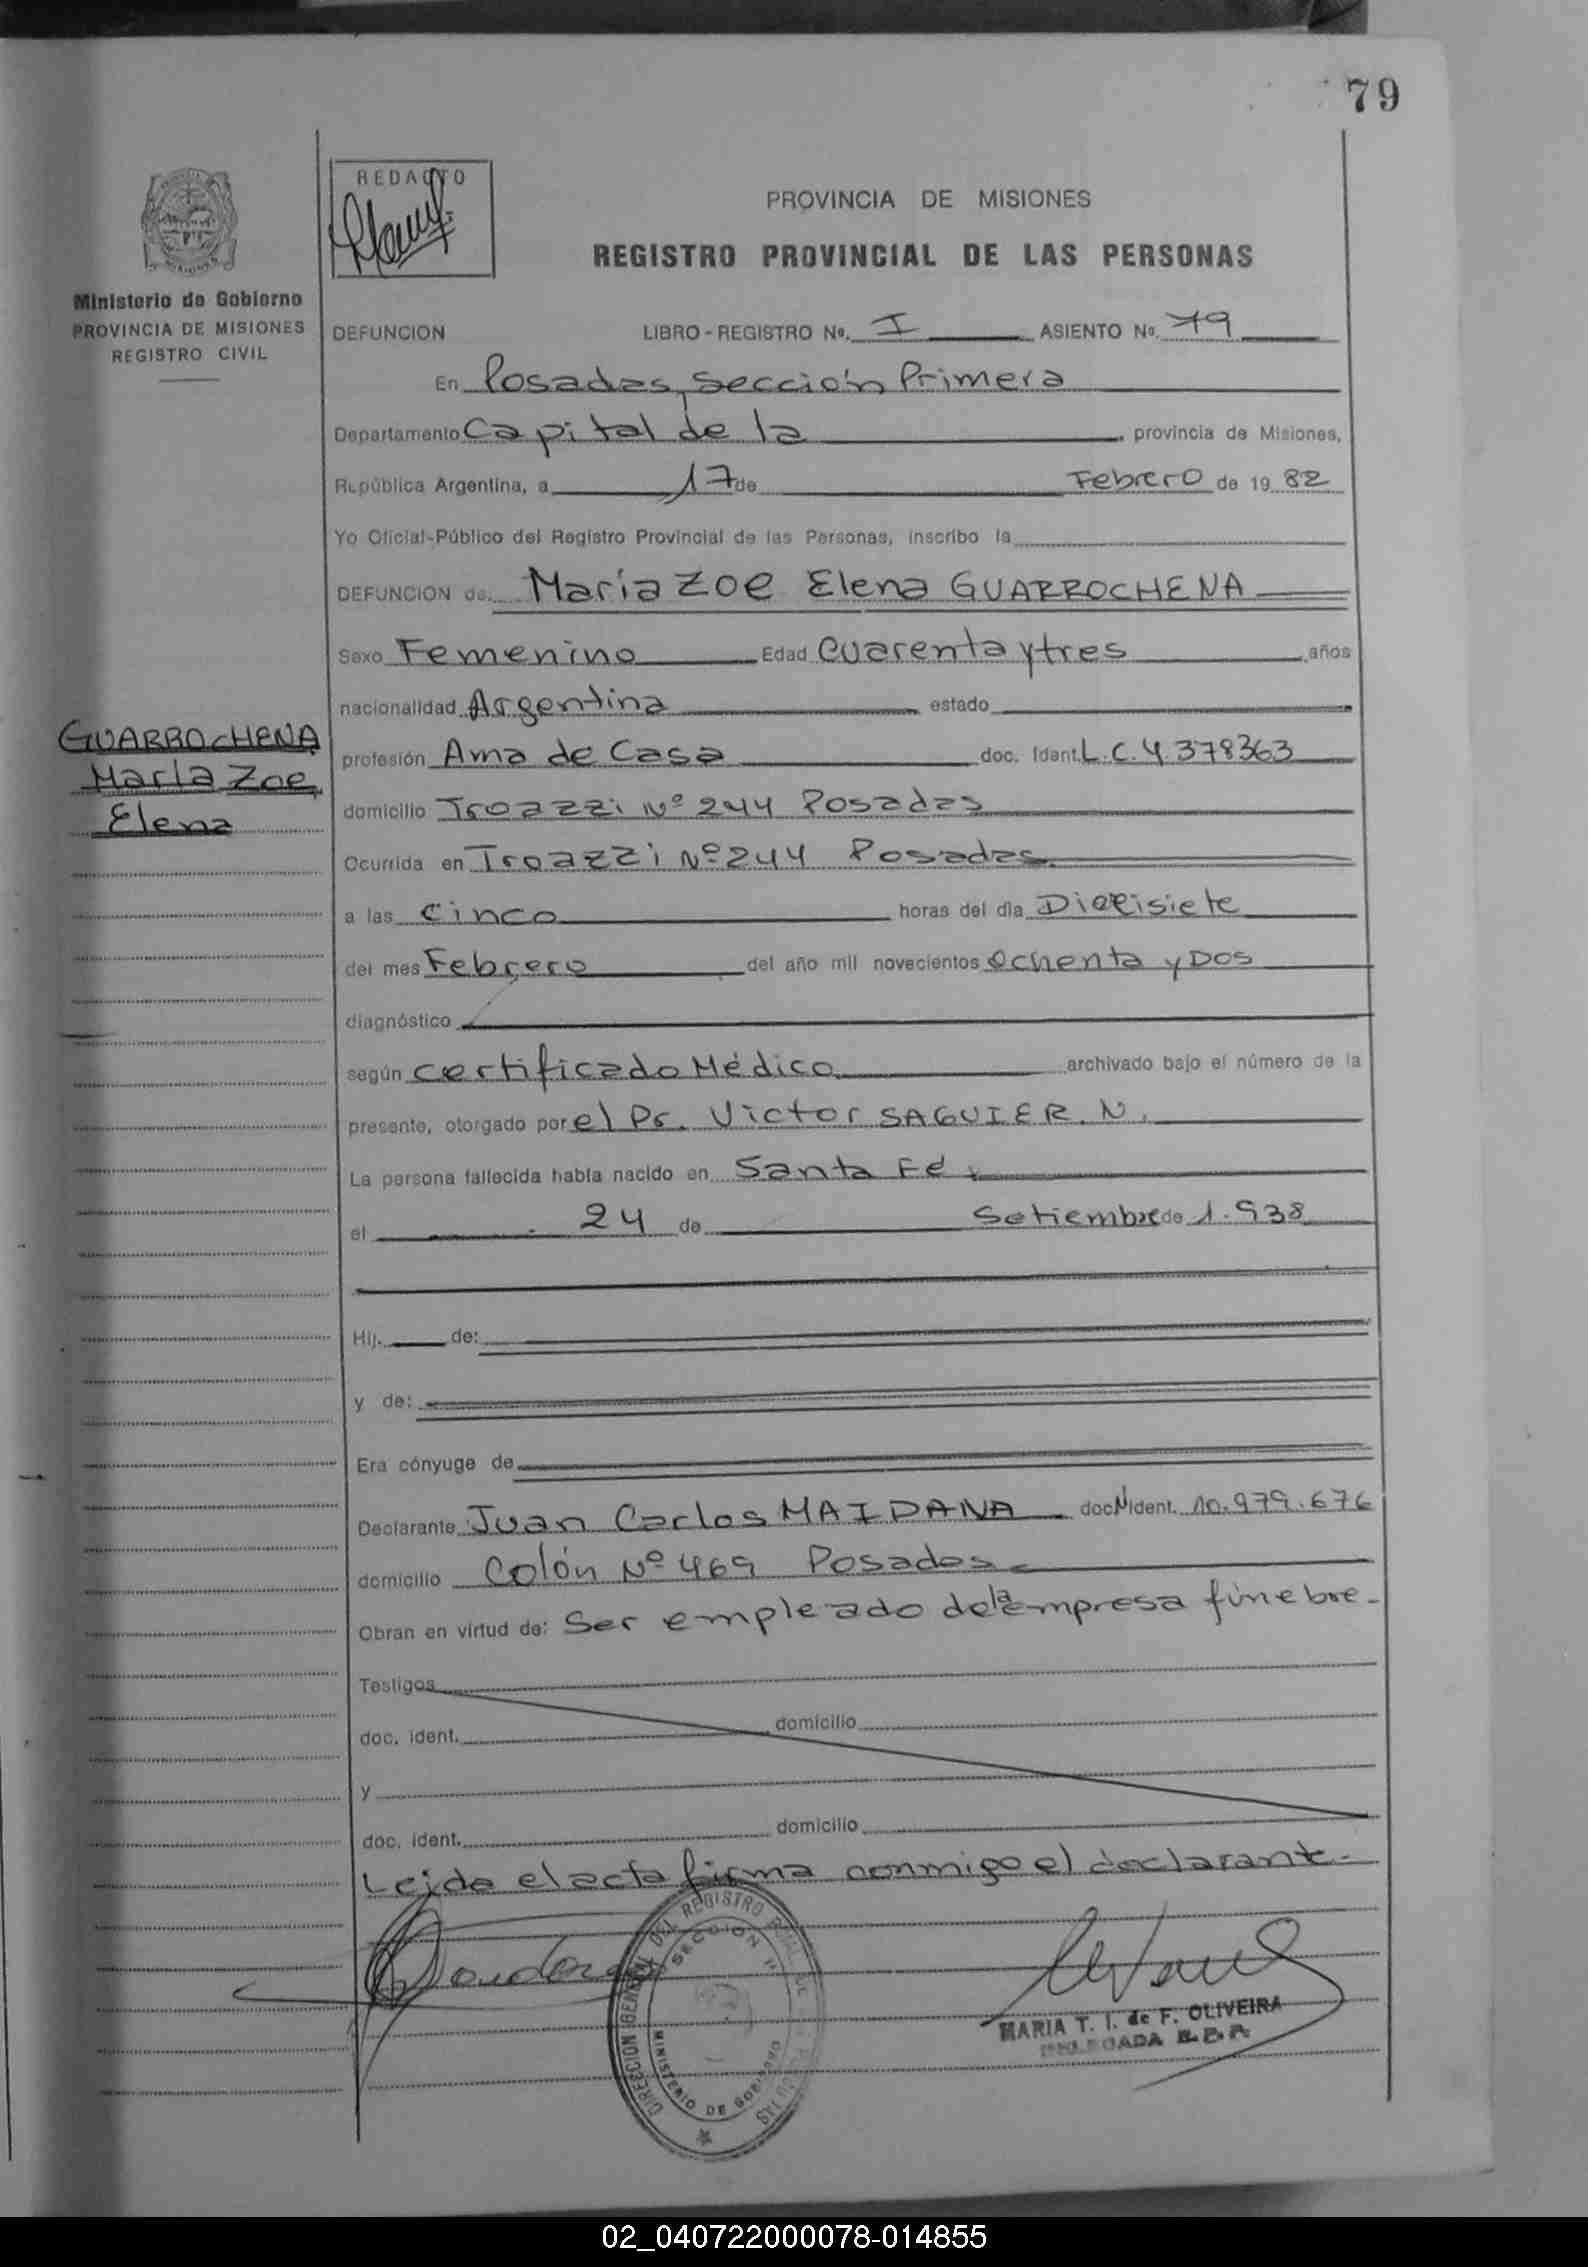 79
REDACTO
PROVINCIA DE MISIONES
REGISTRO PROVINCIAL DE LAS PERSONAS
Ministerio de Gobierno
PROVINCIA DE MISIONES
REGISTRO CIVIL
DEFUNCION LIBRO - REGISTRO No. I ASIENTO No. 79
En Posadas, Sección Primera
Departamento Capital de la , provincia de Misiones,
República Argentina, a 17 de Febrero de 19 82
Yo Oficial-Público del Registro Provincial de las Personas, inscribo la
DEFUNCION de: María Zoe Elena GUARROCHENA
Sexo Femenino Edad Cuarenta y tres años
nacionalidad Argentina estado
GUARROCHENA
María Zoe
Elena
profesión Ama de Casa doc. Ident. L.C. 4.378363
domicilio Troazzi Nº 244 Posadas
Ocurrida en Troazzi Nº 244 Posadas
a las Cinco horas del día Diecisiete
del mes Febrero del año mil novecientos Ochenta y Dos
diagnóstico
según Certificado Médico archivado bajo el número de la
presente, otorgado por el Dr. Victor SAGUIER. N.
La persona fallecida había nacido en Santa Fé
el 24 de Setiembre de 1.938
Hij. de:
y de:
Era cónyuge de
Declarante Juan Carlos MAIDANA doc. N ident. 10.979.676
domicilio Colón Nº 469 Posadas
Obran en virtud de: Ser empleado de la empresa fúnebre.-
Testigos
doc. ident. domicilio
y
doc. ident. domicilio
Leida el acta firma conmigo el declarante.-
DIRECCION GENERAL DEL REGISTRO PCIAL. DE LAS PERSONAS
SECCION 1ª
MINISTERIO DE GOBIERNO
MARIA T. I. de F. OLIVEIRA
DELEGADA
02_040722000078-014855